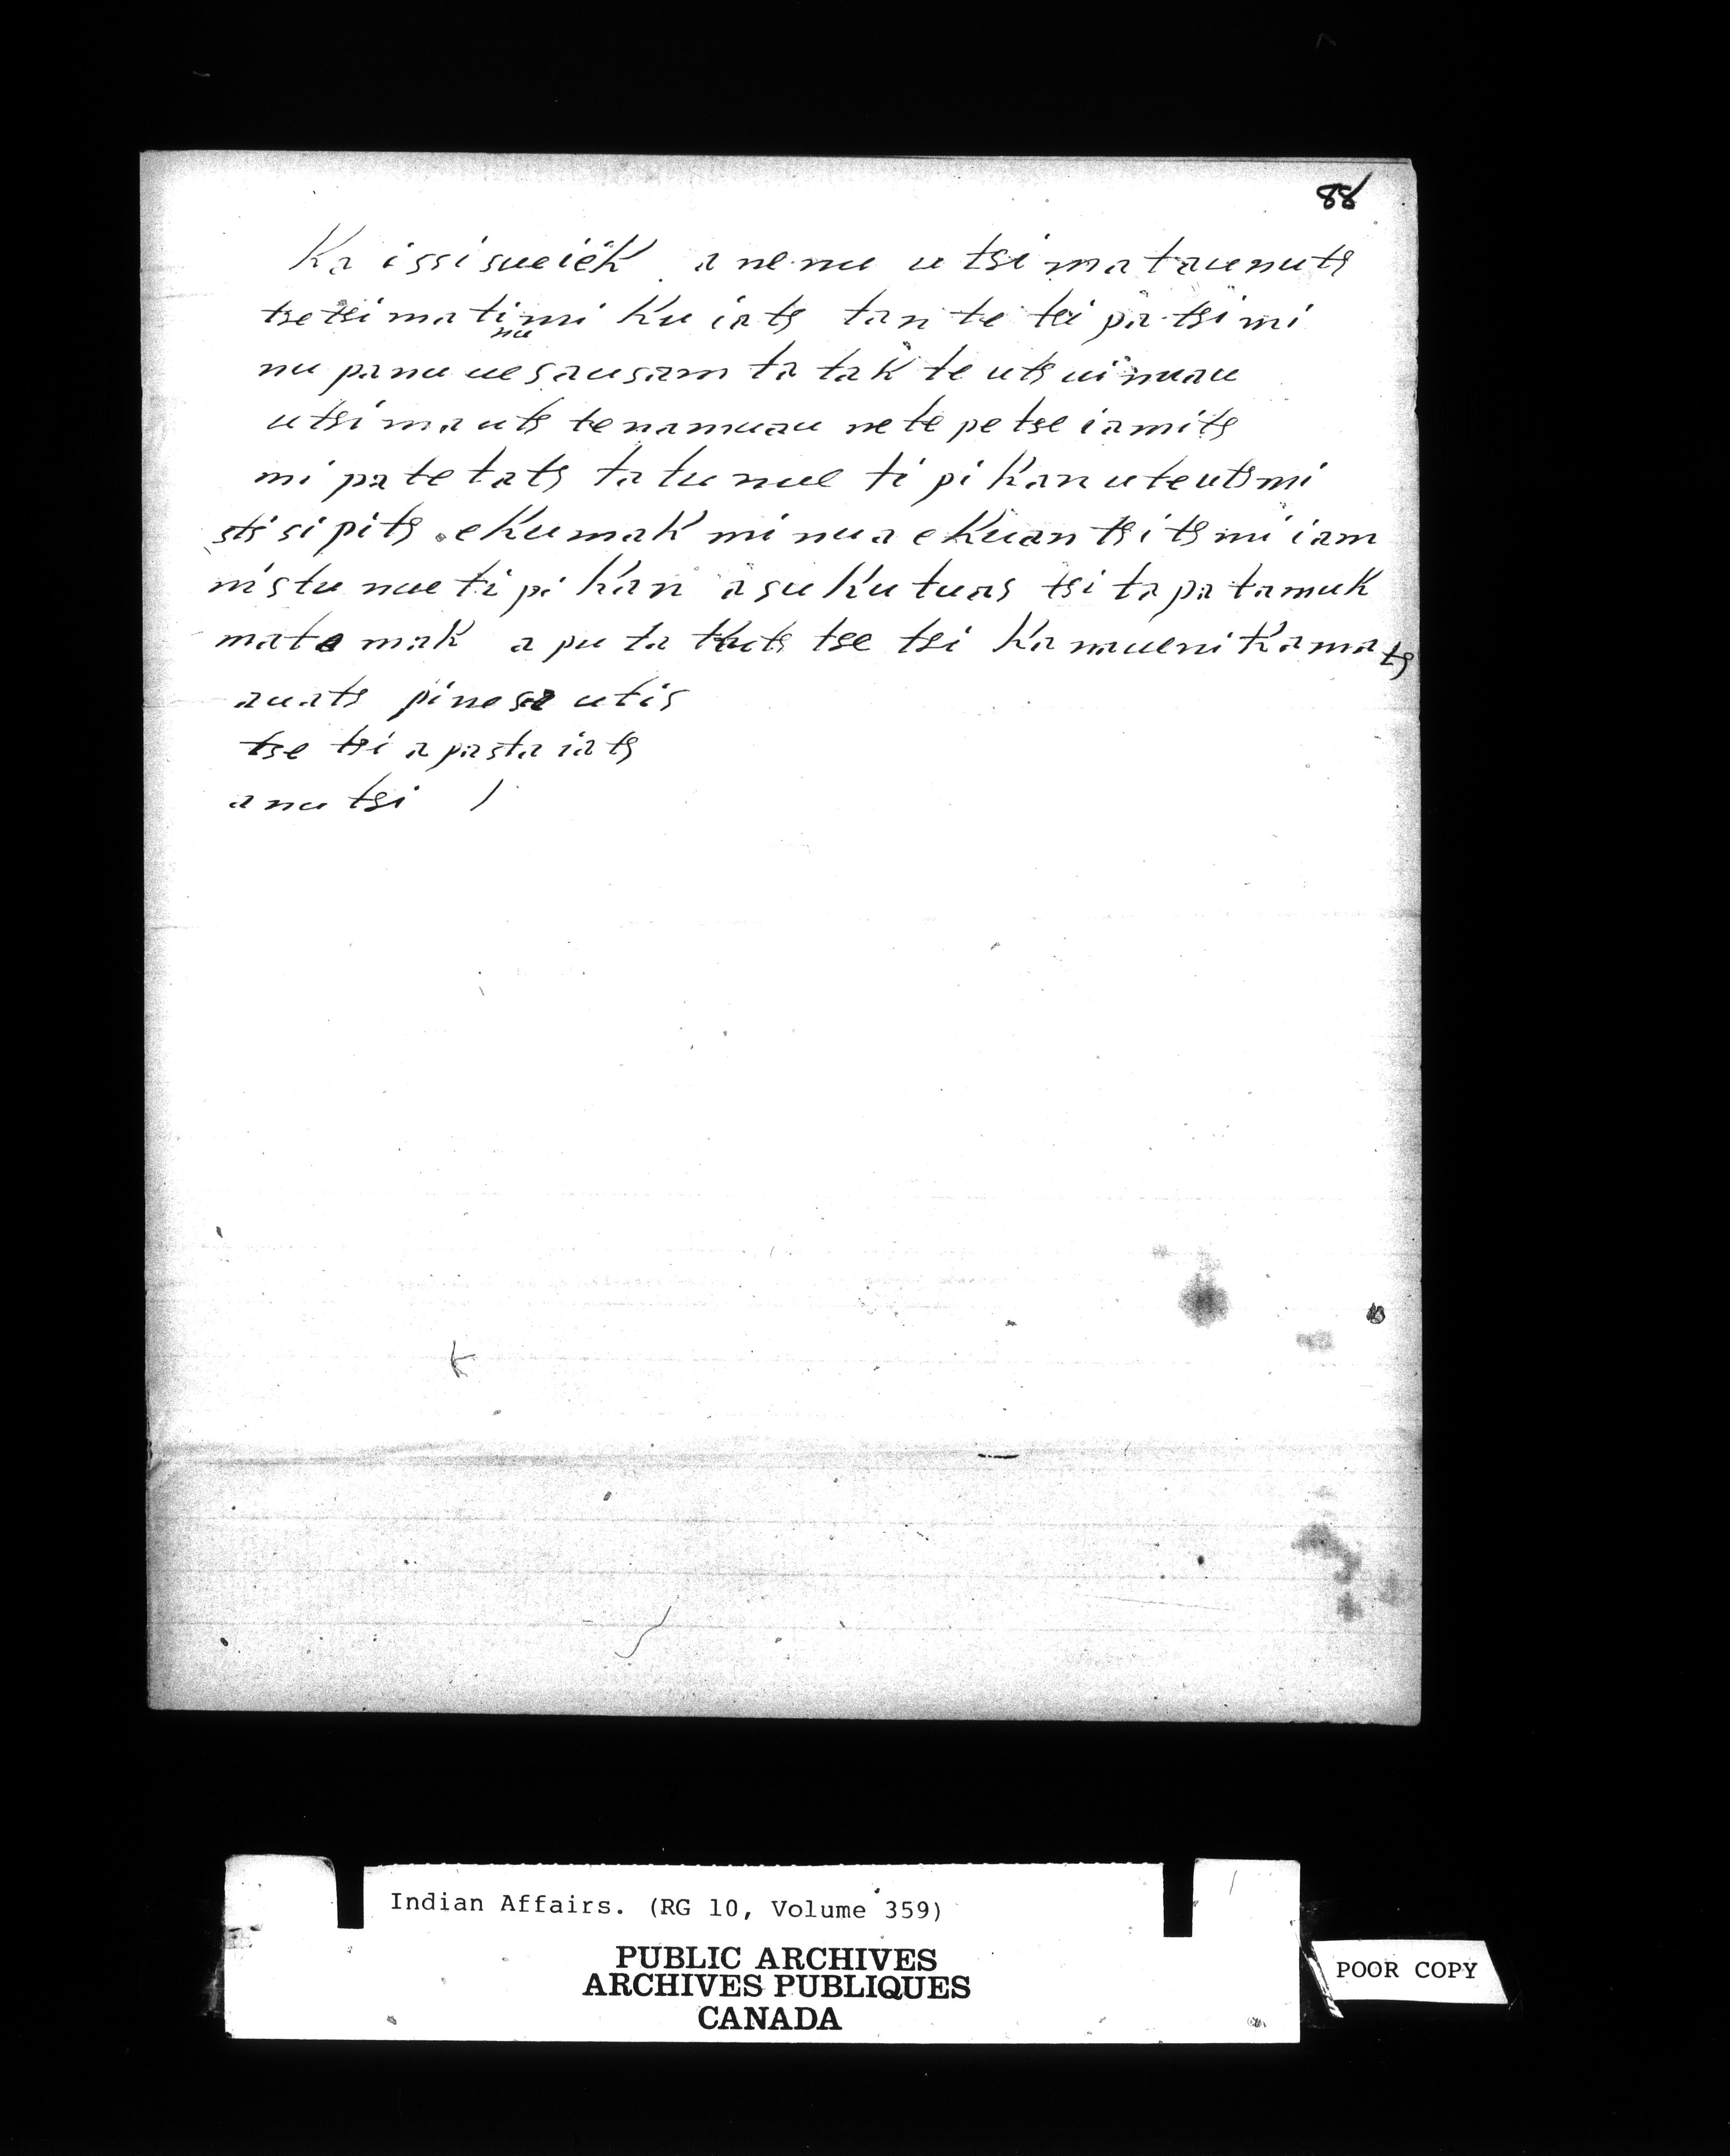 88
Ka issisueiëk anenu utsimataunuts
tsetsimatimi kuiats tante tsi pa tsimi
nu
nu panu uesausam ta tak te uts uinuau
utsimauts tenamuau nete petse iamits
mi pa te tats ta tu nue ti pi kan u te utsmi
sts si pits ekumak minu a ekuan tsitsmi iam
nistu nue ti pi kan asukutuas tsi ta pa tamuk
mate mak a pu ta tse tsi ka nauenikamats
auats pinese utis
tse tsi a pasta iats
anutsi
Indian Affairs. (RG 10, Volume 359)
PUBLIC ARCHIVES
ARCHIVES PUBLIQUES
CANADA
POOR COPY